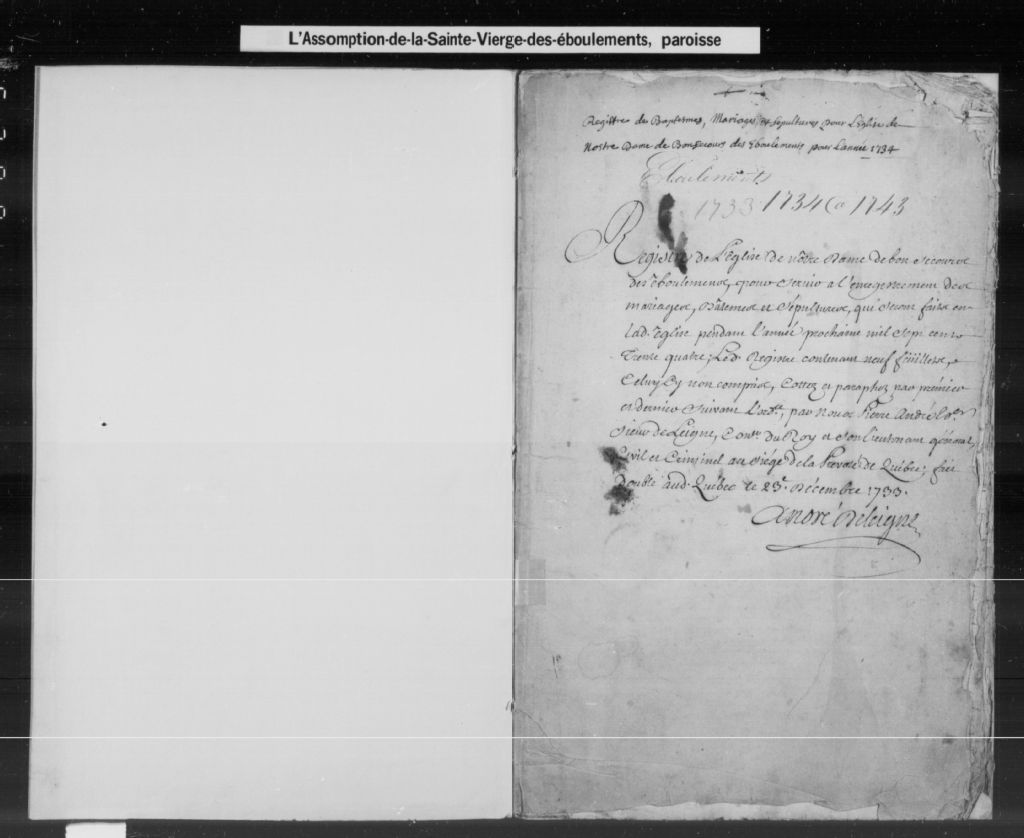 L'Assomption-de-la-Sainte-Vierge-des-éboulements, paroisse
Registre des Baptesmes, Mariages, et sepultures pour L'Eglise de
Nostre Dame de Bonsecours des Eboulements pour Lannée 1734
Eboulements
1733 1734 à 1743
Registre de L'église de nôtre Dame de bon secours
des éboulemens, pour servir a l'enregistrement des
mariages, Batêmes et Sépultures, qui seront faits en
lad. église pendant l'année prochaine mil sept cent
Trente quatre, Led. Registre contenant neuf feüillets,
Celuy Cy non compris, Cottez et paraphez par prémier
et dernier suivant L'ord.ce, par Nous Pierre André
sieur de Leigne, Con.er Du Roy et son lieutenant général
Civil et Criminel au siége de la Prevosté de Québec; fait
Double aud. Québec le 23.e Décembre 1733.
André De leigne